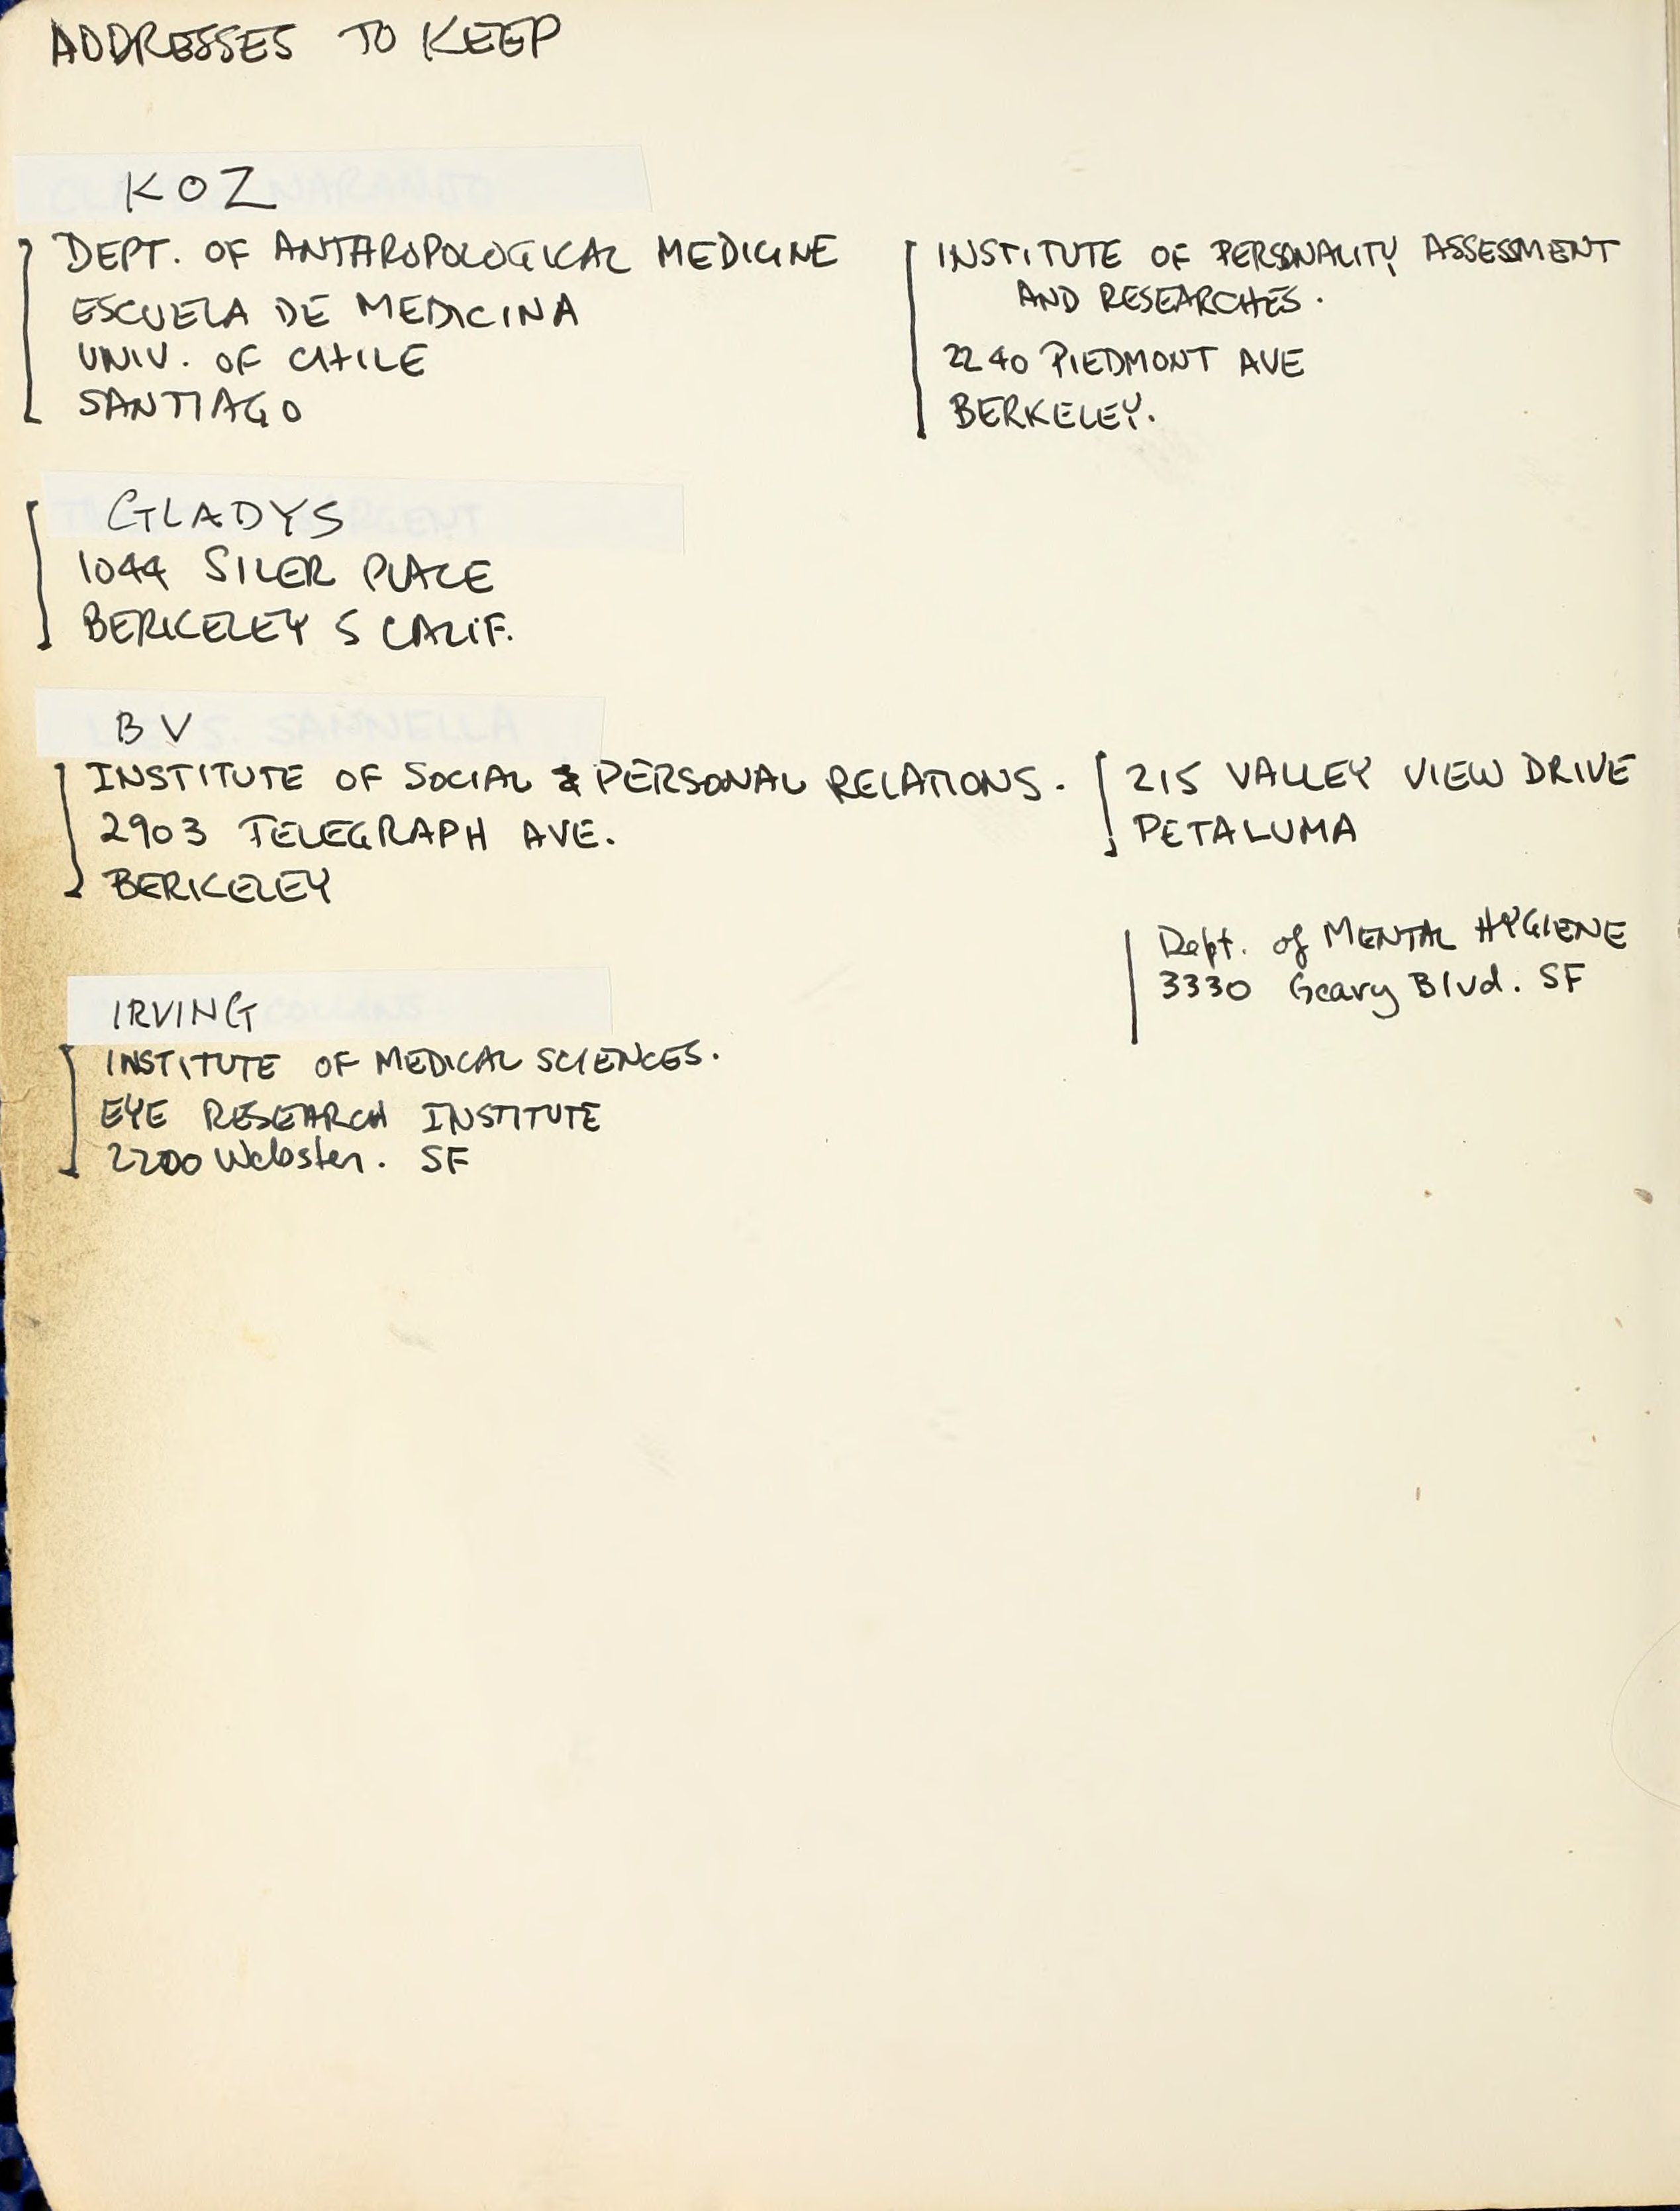 ADDRESSES TO KEEP
KOZ
DEPT. OF ANTHROPOLOGICAL MEDICINE
ESCUELA DE MEDICINA
UNIV. OF CHILE
SANTIAGO
INSTITUTE OF PERSONALITY ASSESSMENT
AND RESEARCHES.
2240 PIEDMONT AVE
BERKELEY.
GLADYS
1044 SILER PLACE
BERKELEY 5 CALIF.
BV
INSTITUTE OF SOCIAL & PERSONAL RELATIONS.
2903 TELEGRAPH AVE.
BERKELEY
215 VALLEY VIEW DRIVE
PETALUMA
Dept. of MENTAL HYGIENE
3330 Geary Blvd. SF
IRVING
INSTITUTE OF MEDICAL SCIENCES.
EYE RESEARCH INSTITUTE
2200 Webster. SF